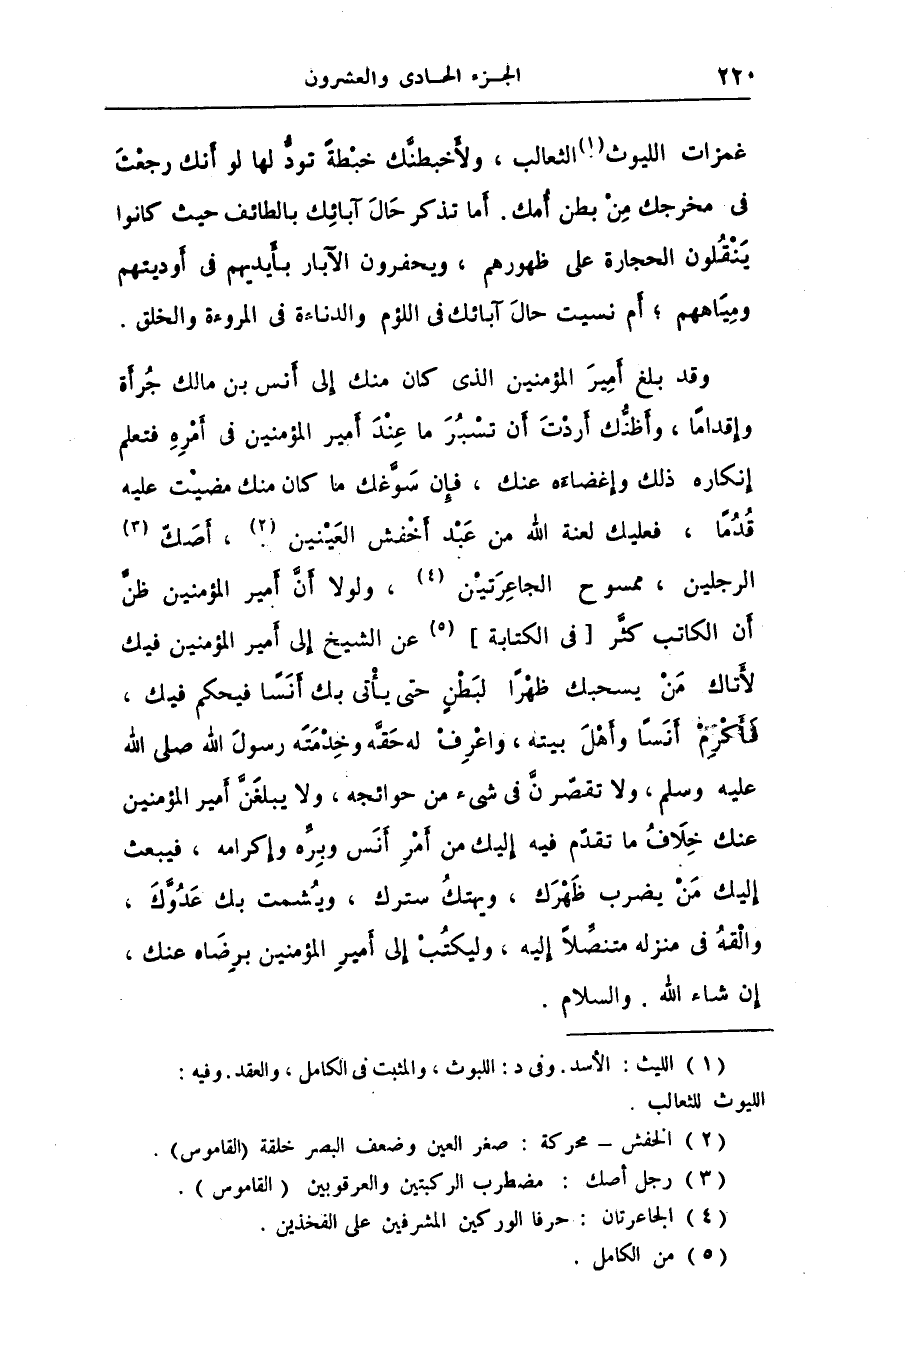 ٢٢٠ الجزء الحادى والعشرون
غمزات الليوث(١) الثعالب ، ولأَخبطنَّك خبْطةً تودُّ لها لو أنك رجعْتَ
فى مخرجك مِنْ بطن أُمك . أما تذكر حَالَ آبائِك بالطائف حيث كانوا
يَنْقُلون الحجارة على ظهورهم ، ويحفرون الآبار بأَيديهم فى أَوديتهم
ومِيَاههم ؛ أَم نسيت حالَ آبائك فى اللؤم والدناءة فى المروءة والخلق .
وقد بلغ أَمِيرَ المؤمنين الذى كان منك إلى أَنس بن مالك جُرأَة
وإقدامًا ، وأَظنُّك أَردْتَ أَن تسْبُرَ ما عِنْدَ أَمير المؤمنين فى أَمْرِهِ فتعلم
إنكاره ذلك وإغضاءه عنك ، فإن سَوَّغك ما كان منك مضيْت عليه
قُدُمًا ، فعليك لعنة الله من عَبْد أَخْفش العَيْنين (٢) ، أَصَكّ (٣)
الرجلين ، ممسوح الجاعِرَتيْن (٤) ، ولولا أَنَّ أَمير المؤمنين ظنَّ
أَن الكاتب كثَّر [ فى الكتابة ] (٥) عن الشيخ إلى أَمير المؤمنين فيك
لأَتاك مَنْ يسحبك ظهْرًا لبَطْنٍ حتى يأْتى بك أَنَسًا فيحكم فيك ،
فَأَكْرِمْ أَنَسًا وأَهْلَ بيته ، واعْرِفْ له حَقَّه وخِدْمَتَه رسولَ الله صلى الله
عليه وسلم ، ولا تقصّرنَّ فى شىء من حوائجه ، ولا يبلغَنَّ أَمير المؤمنين
عنك خِلَافُ ما تقدّم فيه إليك من أَمْرِ أَنَس وبِرِّه وإكرامه ، فيبعث
إليك مَنْ يضرب ظَهْرَك ، ويهتكُ سترك ، ويُشمت بك عَدُوَّكَ ،
والْقهُ فى منزله متنصِّلاً إليه ، وليكتُبْ إلى أَميرِ المؤمنين برِضَاه عنك ،
إن شاء الله . والسلام .
(١) الليث : الأسد . وفى د : اللبوث ، والمثبت فى الكامل ، والعقد . وفيه :
الليوث للثعالب .
(٢) الخفش - محركة : صغر العين وضعف البصر خلقة (القاموس) .
(٣) رجل أصك : مضطرب الركبتين والعرقوبين ( القاموس ) .
(٤) الجاعرتان : حرفا الوركين المشرفين على الفخذين .
(٥) من الكامل .